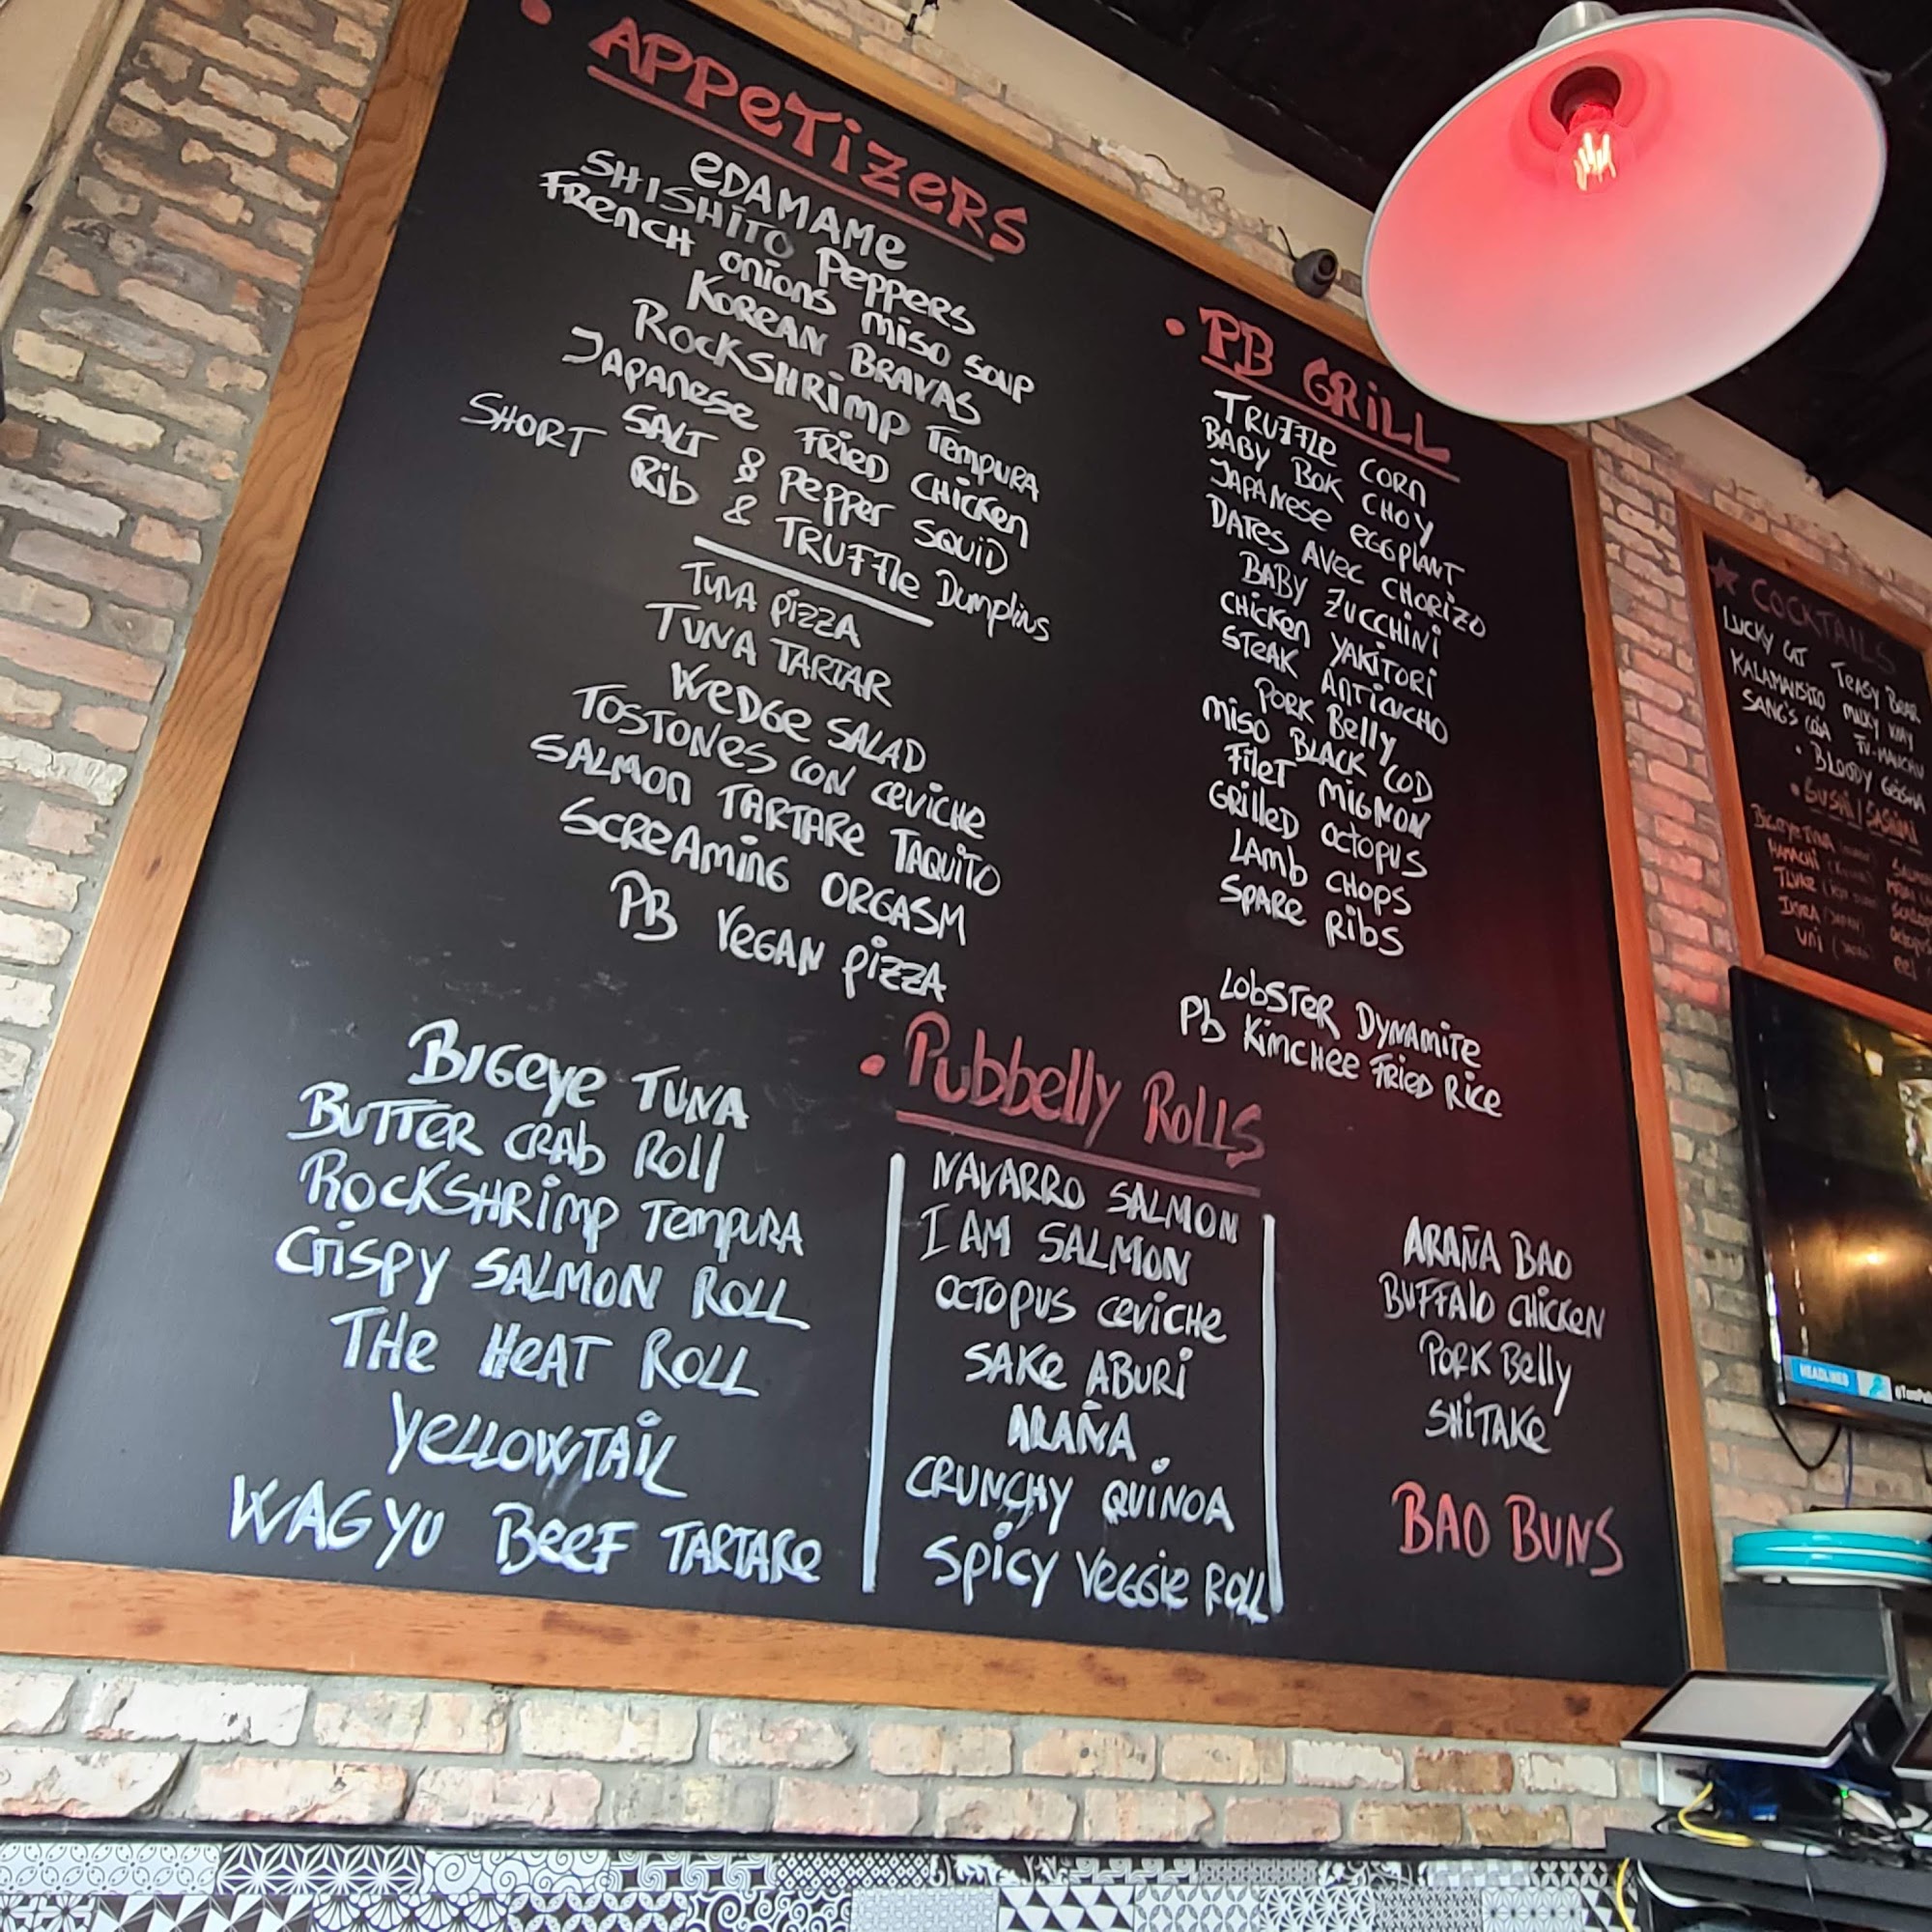 APPETIZERS
EDAMAME
SHISHITO PEPPERS
FRENCH ONIONS MISO SOUP
KOREAN BRAVAS
ROCKSHRIMP TEMPURA
JAPANESE FRIED CHICKEN
SALT & PEPPER SQUID
SHORT RIB & TRUFFLE DUMPLINS
TUNA PIZZA
TUNA TARTAR
WEDGE SALAD
TOSTONES CON CEVICHE
SALMON TARTARE TAQUITO
SCREAMING ORGASM
PB VEGAN PIZZA
PB GRILL
TRUFFLE CORN
BABY BOK CHOY
JAPANESE EGGPLANT
DATES AVEC CHORIZO
BABY ZUCCHINI
CHICKEN YAKITORI
STEAK ANTICUCHO
PORK BELLY
MISO BLACK COD
FILET MIGNON
GRILLED OCTOPUS
LAMB CHOPS
SPARE RIBS
LOBSTER DYNAMITE
Pb KIMCHEE FRIED RICE
Pubbelly ROLLS
BIGEYE TUNA
BUTTER CRAB ROLL
ROCKSHRIMP TEMPURA
CRISPY SALMON ROLL
THE HEAT ROLL
YELLOWTAIL
WAGYU BEEF TARTARE
NAVARRO SALMON
I AM SALMON
OCTOPUS CEVICHE
SAKE ABURI
ARAÑA
CRUNCHY QUINOA
SPICY VEGGIE ROLL
ARAÑA BAO
BUFFALO CHICKEN
PORK BELLY
SHITAKE
BAO BUNS
COCKTAILS
LUCKY CAT TEASY BEAR
MILKY WAY
SANG'S
BLOODY GEISHA
SUSHI / SASHIMI
BIGEYE TUNA
HAMACHI
UNI
EEL
HEADLINES